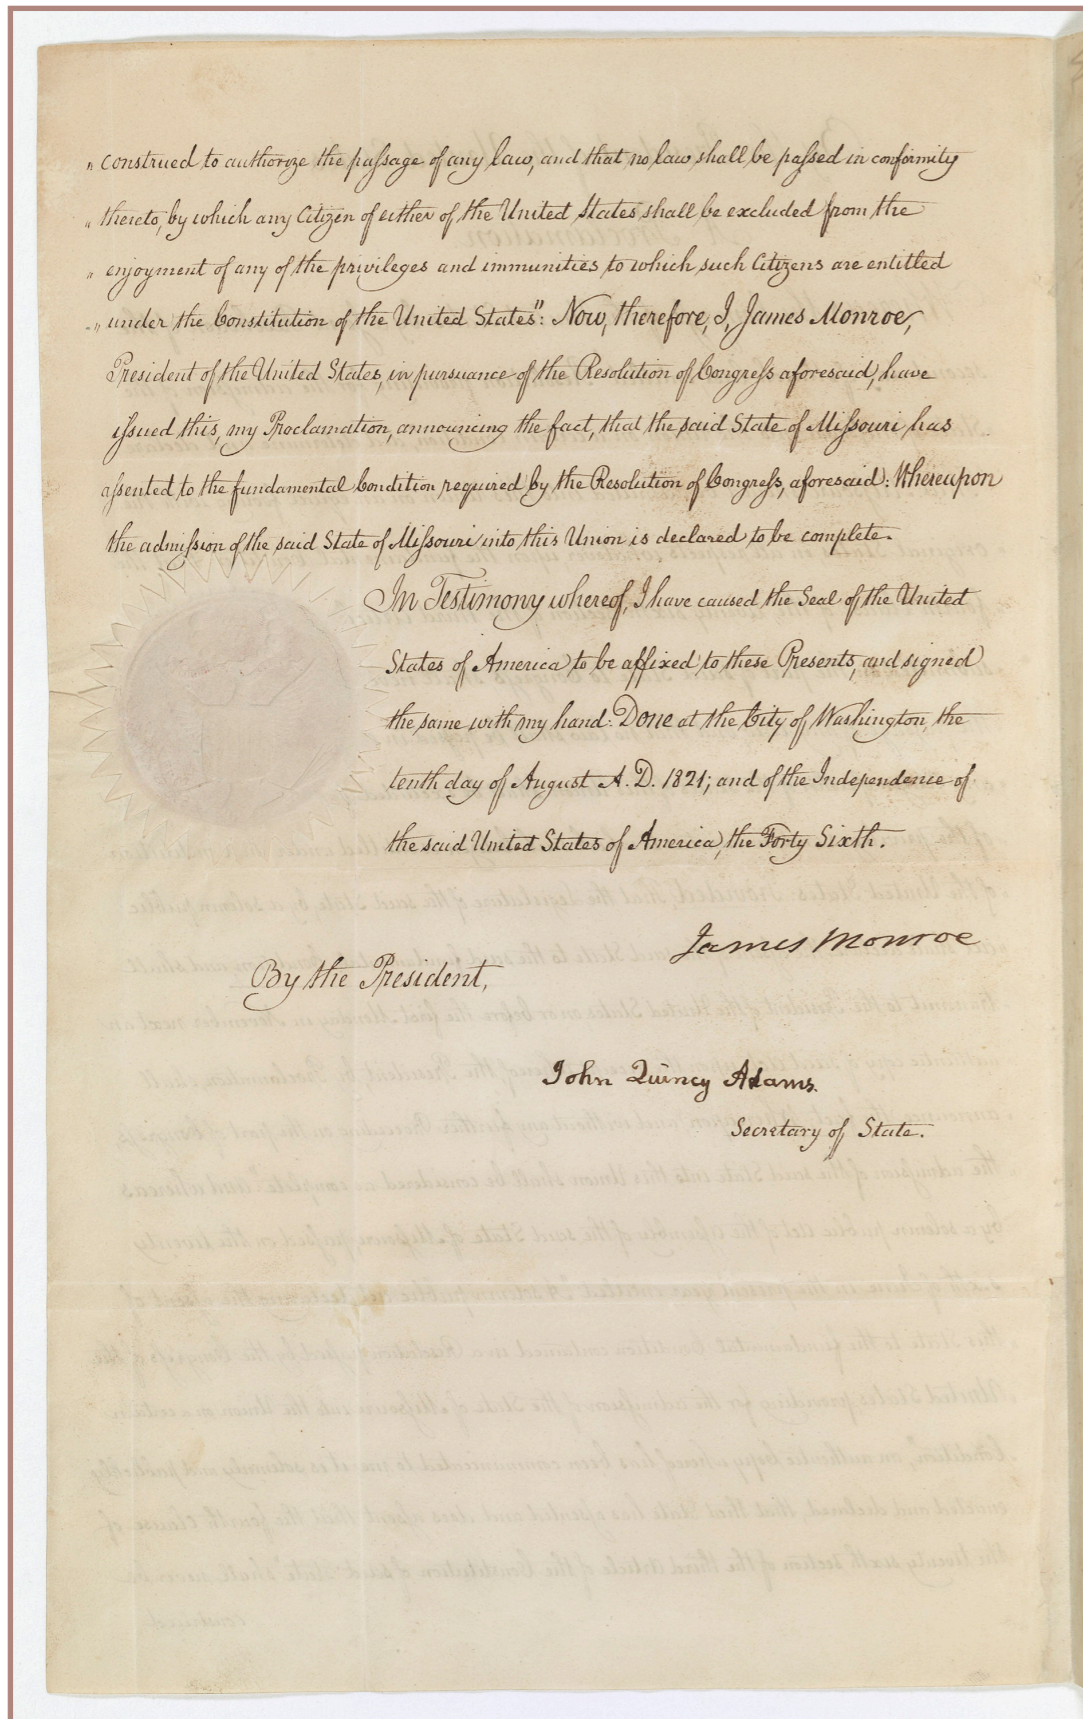 " construed to authorize the passage of any law, and that no law shall be passed in conformity
" thereto, by which any Citizen of either of the United States shall be excluded from the
" enjoyment of any of the privileges and immunities to which such Citizens are entitled
" under the Constitution of the United States": Now, therefore, I, James Monroe,
President of the United States, in pursuance of the Resolution of Congress aforesaid, have
issued this, my Proclamation, announcing the fact, that the said State of Missouri has
assented to the fundamental Condition required by the Resolution of Congress, aforesaid: Whereupon
the admission of the said State of Missouri into this Union is declared to be complete.
In Testimony whereof, I have caused the Seal of the United
States of America to be affixed to these Presents, and signed
the same with my hand: Done at the City of Washington, the
tenth day of August A. D. 1821; and of the Independence of
the said United States of America, the Forty Sixth.
James Monroe
By the President,
John Quincy Adams.
Secretary of State.